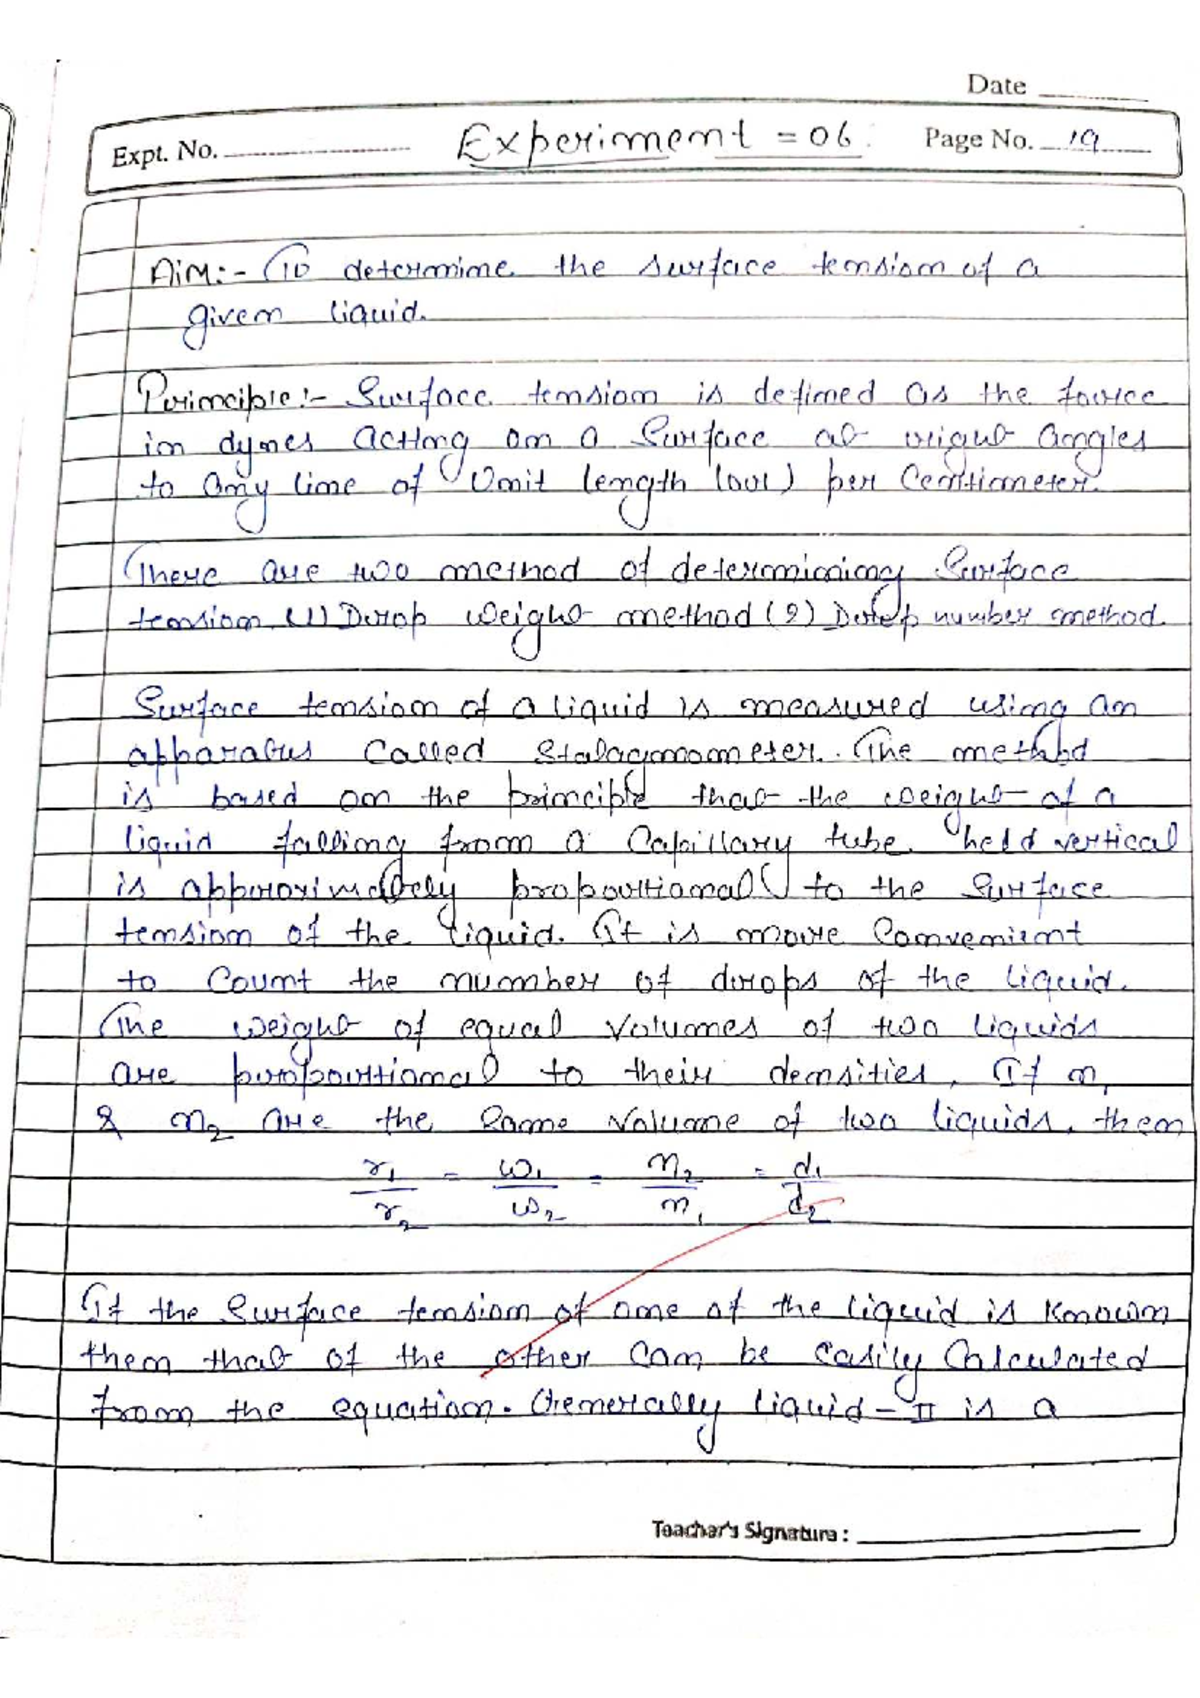 Date
Expt. No. Experiment = 06. Page No. 19
Aim:- To determine the surface tension of a
given liquid.
Principle:- Surface tension is defined as the force
in dynes acting on a surface at right angles
to any line of unit length (or) per centimeter.
There are two method of determinining surface
tension. (1) Drop weight method (2) Drop number method.
Surface tension of a liquid is measured using an
apparatus called stalagmometer. The method
is based on the principle that the weight of a
liquid falling from a capillary tube held vertical
is approximately proportional to the surface
tension of the liquid. It is more convenient
to count the number of drops of the liquid.
The weight of equal volumes of two liquids
are proportional to their densities, If n₁
& n₂ are the same volume of two liquids, then
r₁/r₂ = w₁/w₂ = n₂/n₁ = d₁/d₂
If the surface tension of one of the liquid is known
then that of the other can be easily calculated
from the equation. Generally liquid-II is a
Teacher's Signature :